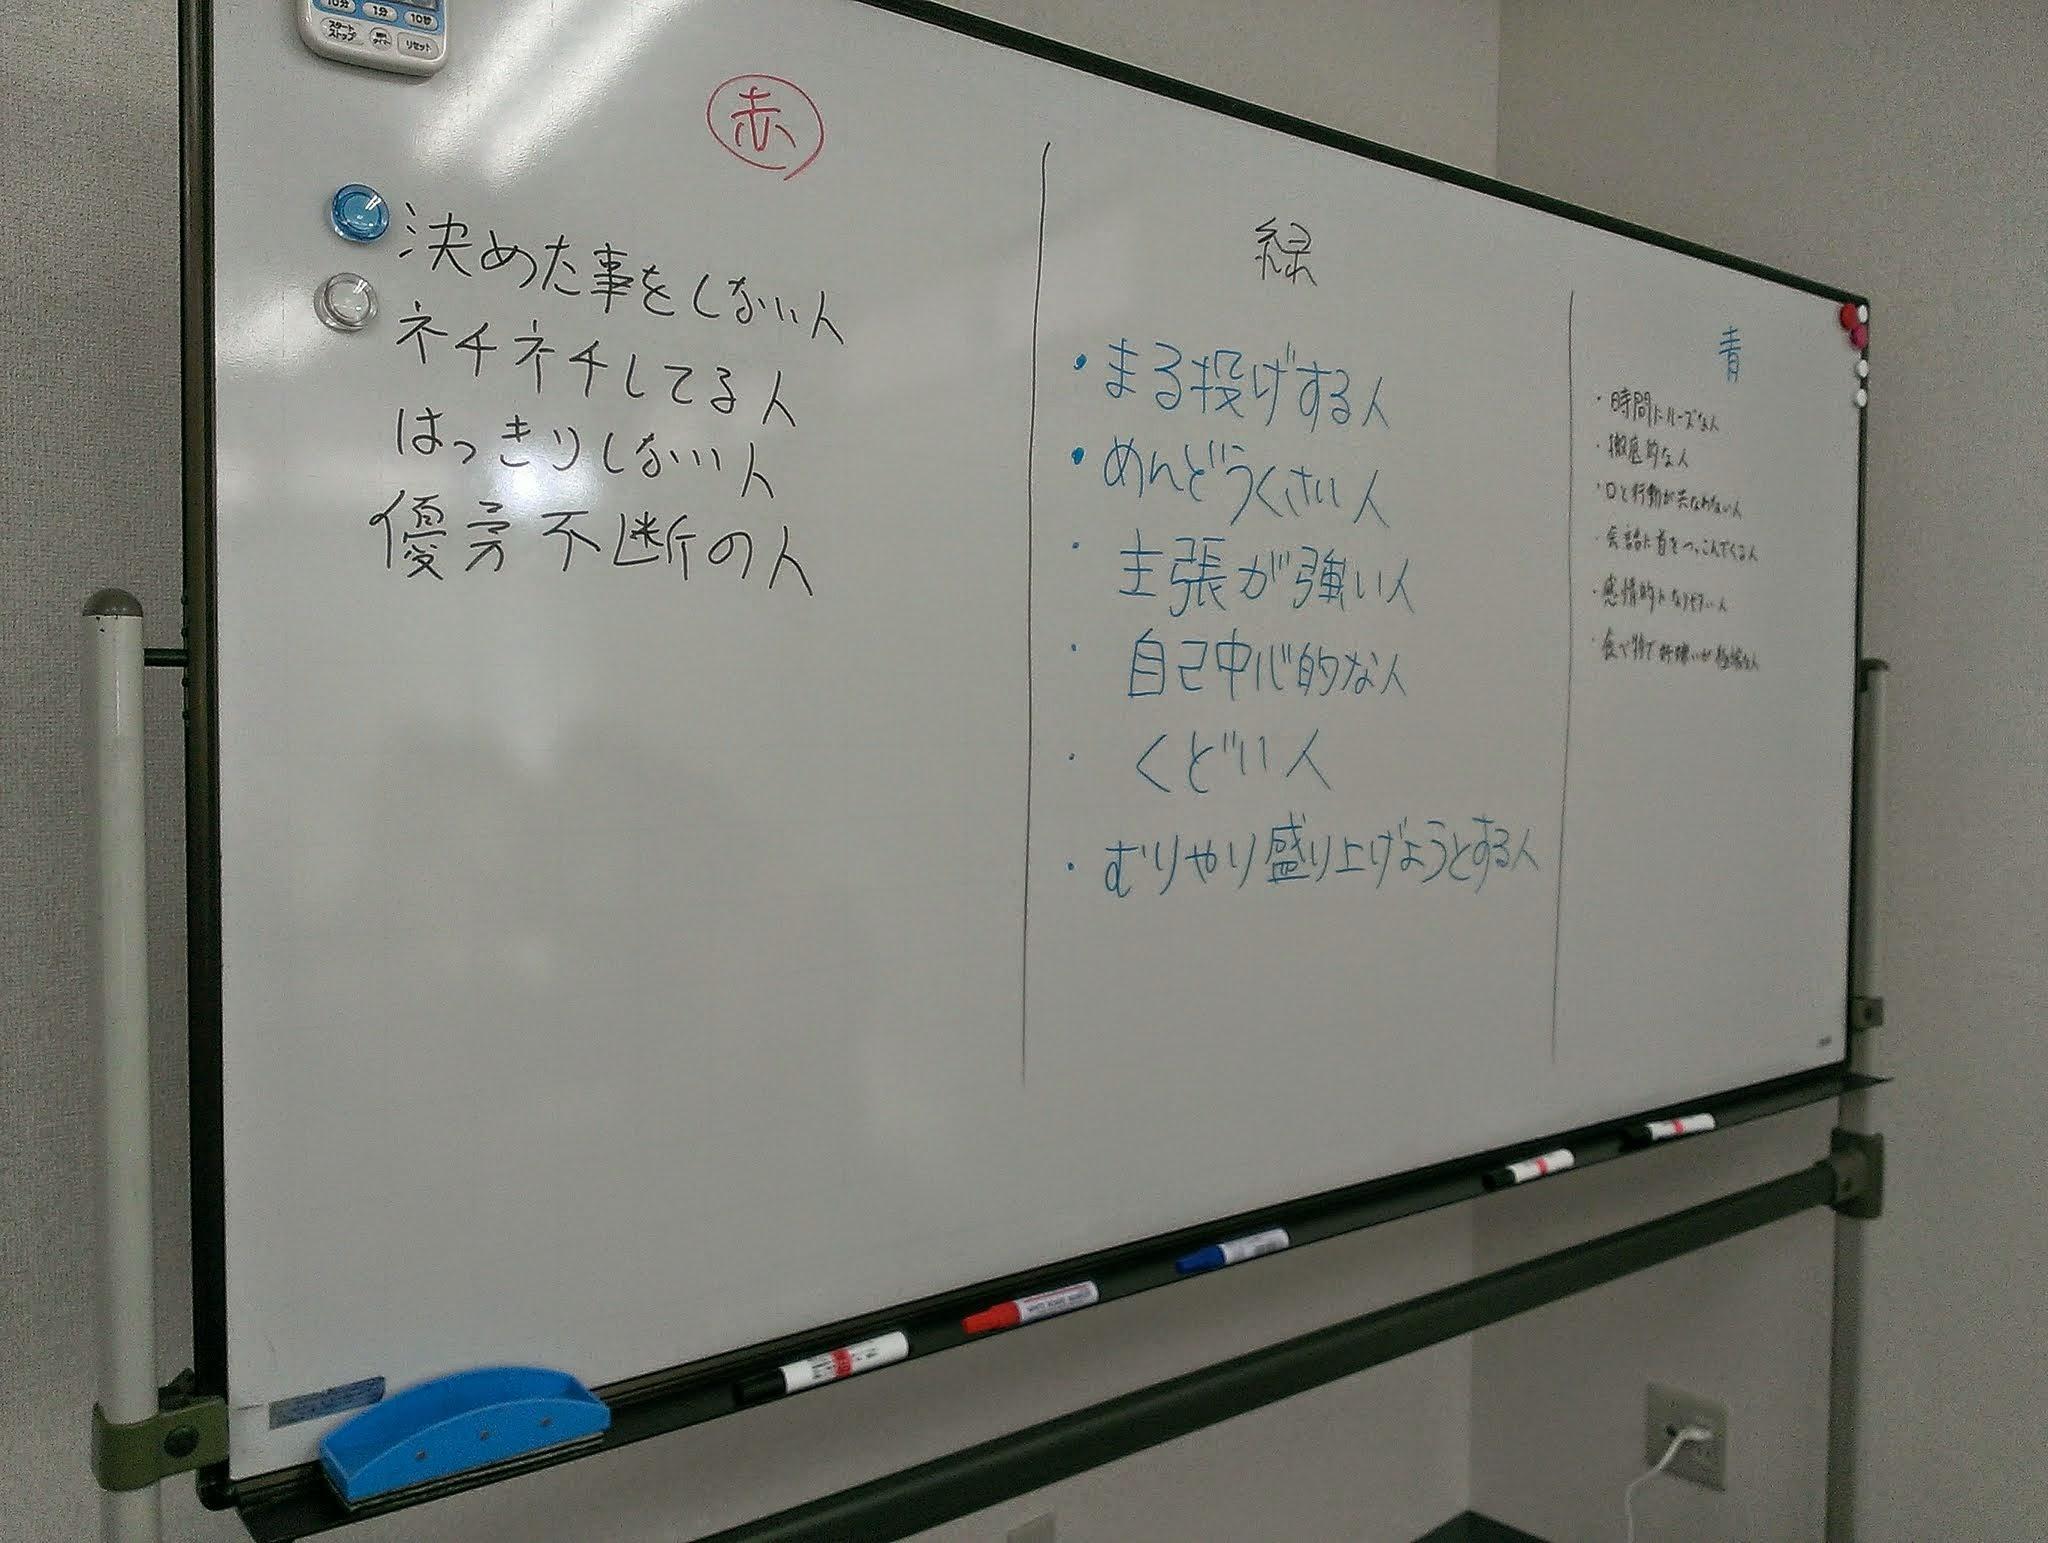 10分 1分 10秒
スタート
ストップ
リセット
赤
決めた事をしない人
ネチネチしてる人
はっきりしない人
優柔不断の人
緑
・まる投げする人
・めんどうくさい人
・主張が強い人
・自己中心的な人
・くどい人
・むりやり盛り上げようとする人
青
・時間にルーズな人
・徹底的な人
・口と行動が共なわない人
・会話に首をつっこんでくる人
・感情的になりやすい人
・食べ物で好嫌いが極端な人